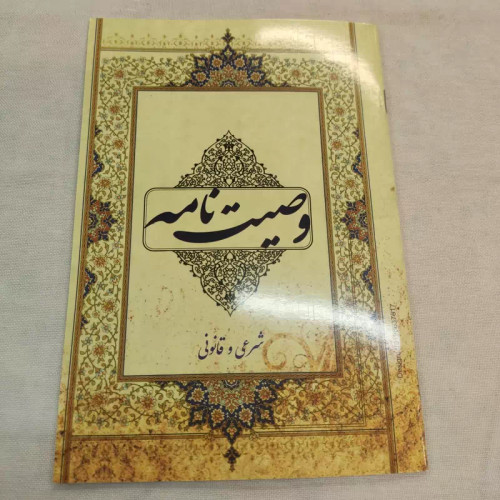 وصیت نامه
شرعی و قانونی